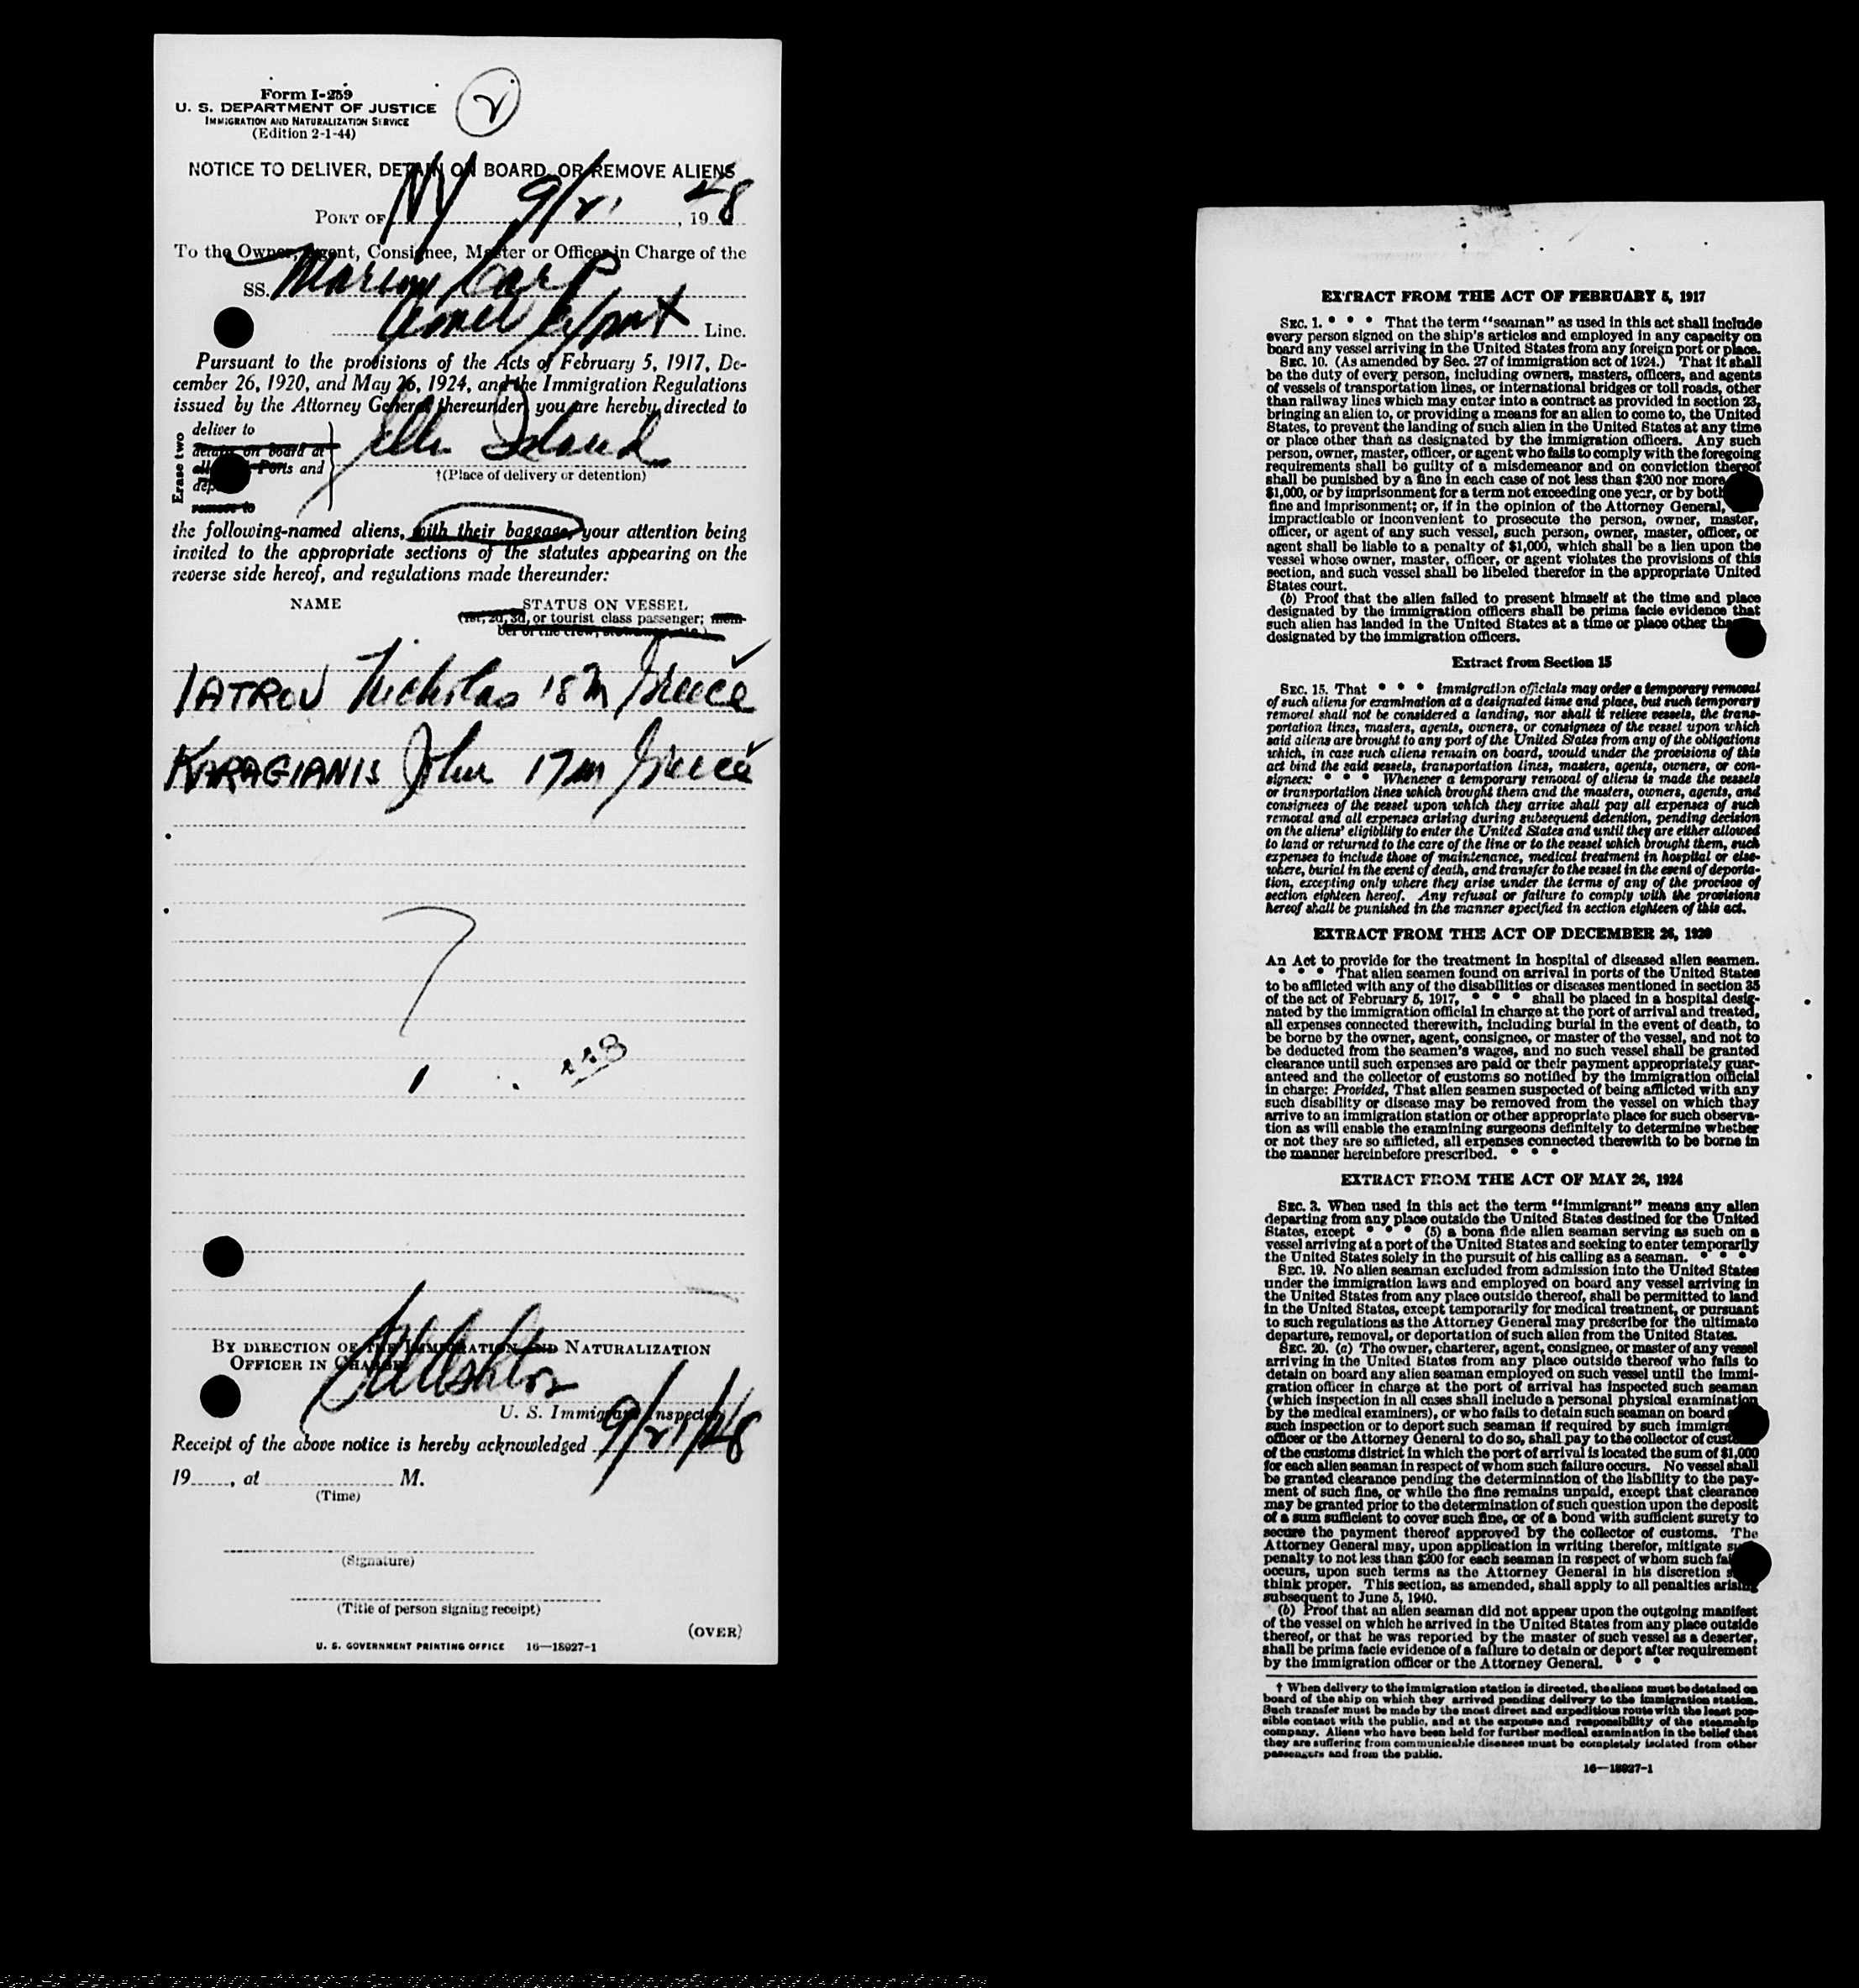 Form I-259
U. S. DEPARTMENT OF JUSTICE
IMMIGRATION AND NATURALIZATION SERVICE
(Edition 2-1-44)
2
NOTICE TO DELIVER, DETAIN ON BOARD, OR REMOVE ALIENS
PORT OF NY 9/21, 1948
To the Owner, Agent, Consignee, Master or Officer in Charge of the
SS. Marine Carp
Amer Export Line.
Pursuant to the provisions of the Acts of February 5, 1917, De-
cember 26, 1920, and May 26, 1924, and the Immigration Regulations
issued by the Attorney General thereunder, you are hereby directed to
Erase two
deliver to
detain on board at
all Ports and
remove to
Ellis Island
†(Place of delivery or detention)
the following-named aliens, with their baggage, your attention being
invited to the appropriate sections of the statutes appearing on the
reverse side hereof, and regulations made thereunder:
NAME STATUS ON VESSEL
(1st, 2d, 3d, or tourist class passenger; mem-
ber of the crew, stowaway, etc.)
IATROU Nicholas 18 M Greece ✓
KARAGIANIS John 17 M Greece ✓
BY DIRECTION OF THE IMMIGRATION AND NATURALIZATION
OFFICER IN CHARGE
U. S. Immigrant Inspector.
Receipt of the above notice is hereby acknowledged 9/21/48
19, at M.
(Time)
(Signature)
(Title of person signing receipt)
(OVER)
U. S. GOVERNMENT PRINTING OFFICE 16—18927-1
EXTRACT FROM THE ACT OF FEBRUARY 5, 1917
SEC. 1. * * * That the term "seaman" as used in this act shall include
every person signed on the ship's articles and employed in any capacity on
board any vessel arriving in the United States from any foreign port or place.
SEC. 10. (As amended by Sec. 27 of immigration act of 1924.) That it shall
be the duty of every person, including owners, masters, officers, and agents
of vessels of transportation lines, or international bridges or toll roads, other
than railway lines which may enter into a contract as provided in section 23,
bringing an alien to, or providing a means for an alien to come to, the United
States, to prevent the landing of such alien in the United States at any time
or place other than as designated by the immigration officers. Any such
person, owner, master, officer, or agent who fails to comply with the foregoing
requirements shall be guilty of a misdemeanor and on conviction thereof
shall be punished by a fine in each case of not less than $200 nor more
$1,000, or by imprisonment for a term not exceeding one year, or by both
fine and imprisonment; or, if in the opinion of the Attorney General,
impracticable or inconvenient to prosecute the person, owner, master,
officer, or agent of any such vessel, such person, owner, master, officer, or
agent shall be liable to a penalty of $1,000, which shall be a lien upon the
vessel whose owner, master, officer, or agent violates the provisions of this
section, and such vessel shall be libeled therefor in the appropriate United
States court.
(b) Proof that the alien failed to present himself at the time and place
designated by the immigration officers shall be prima facie evidence that
such alien has landed in the United States at a time or place other
designated by the immigration officers.
Extract from Section 15
SEC. 15. That * * * immigration officials may order a temporary removal
of such aliens for examination at a designated time and place, but such temporary
removal shall not be considered a landing, nor shall it relieve vessels, the trans-
portation lines, masters, agents, owners, or consignees of the vessel upon which
said aliens are brought to any port of the United States from any of the obligations
which, in case such aliens remain on board, would under the provisions of this
act bind the said vessels, transportation lines, masters, agents, owners, or con-
signees: * * * Whenever a temporary removal of aliens is made the vessels
or transportation lines which brought them and the masters, owners, agents, and
consignees of the vessel upon which they arrive shall pay all expenses of such
removal and all expenses arising during subsequent detention, pending decision
on the aliens' eligibility to enter the United States and until they are either allowed
to land or returned to the care of the line or to the vessel which brought them, such
expenses to include those of maintenance, medical treatment in hospital or else-
where, burial in the event of death, and transfer to the vessel in the event of deporta-
tion, excepting only where they arise under the terms of any of the provisos of
section eighteen hereof. Any refusal or failure to comply with the provisions
hereof shall be punished in the manner specified in section eighteen of this act.
EXTRACT FROM THE ACT OF DECEMBER 26, 1920
An Act to provide for the treatment in hospital of diseased alien seamen.
* * * That alien seamen found on arrival in ports of the United States
to be afflicted with any of the disabilities or diseases mentioned in section 35
of the act of February 5, 1917, * * * shall be placed in a hospital desig-
nated by the immigration official in charge at the port of arrival and treated,
all expenses connected therewith, including burial in the event of death, to
be borne by the owner, agent, consignee, or master of the vessel, and not to
be deducted from the seamen's wages, and no such vessel shall be granted
clearance until such expenses are paid or their payment appropriately guar-
anteed and the collector of customs so notified by the immigration official
in charge: Provided, That alien seamen suspected of being afflicted with any
such disability or disease may be removed from the vessel on which they
arrive to an immigration station or other appropriate place for such observa-
tion as will enable the examining surgeons definitely to determine whether
or not they are so afflicted, all expenses connected therewith to be borne in
the manner hereinbefore prescribed. * * *
EXTRACT FROM THE ACT OF MAY 26, 1924
SEC. 3. When used in this act the term "immigrant" means any alien
departing from any place outside the United States destined for the United
States, except * * * (5) a bona fide alien seaman serving as such on a
vessel arriving at a port of the United States and seeking to enter temporarily
the United States solely in the pursuit of his calling as a seaman. * * *
SEC. 19. No alien seaman excluded from admission into the United States
under the immigration laws and employed on board any vessel arriving in
the United States from any place outside thereof, shall be permitted to land
in the United States, except temporarily for medical treatment, or pursuant
to such regulations as the Attorney General may prescribe for the ultimate
departure, removal, or deportation of such alien from the United States.
SEC. 20. (a) The owner, charterer, agent, consignee, or master of any vessel
arriving in the United States from any place outside thereof who fails to
detain on board any alien seaman employed on such vessel until the immi-
gration officer in charge at the port of arrival has inspected such seaman
(which inspection in all cases shall include a personal physical examination
by the medical examiners), or who fails to detain such seaman on board
such inspection or to deport such seaman if required by such
officer or the Attorney General to do so, shall pay to the collector of customs
of the customs district in which the port of arrival is located the sum of $1,000
for each alien seaman in respect of whom such failure occurs. No vessel shall
be granted clearance pending the determination of the liability to the pay-
ment of such fine, or while the fine remains unpaid, except that clearance
may be granted prior to the determination of such question upon the deposit
of a sum sufficient to cover such fine, or of a bond with sufficient surety to
secure the payment thereof approved by the collector of customs. The
Attorney General may, upon application in writing therefor, mitigate such
penalty to not less than $200 for each seaman in respect of whom such
occurs, upon such terms as the Attorney General in his discretion
think proper. This section, as amended, shall apply to all penalties arising
subsequent to June 5, 1940.
(b) Proof that an alien seaman did not appear upon the outgoing manifest
of the vessel on which he arrived in the United States from any place outside
thereof, or that he was reported by the master of such vessel as a deserter,
shall be prima facie evidence of a failure to detain or deport after requirement
by the immigration officer or the Attorney General. * * *
† When delivery to the immigration station is directed, the aliens must be detained on
board of the ship on which they arrived pending delivery to the immigration station.
Such transfer must be made by the most direct and expeditious route with the least pos-
sible contact with the public, and at the expense and responsibility of the steamship
company. Aliens who have been held for further medical examination in the belief that
they are suffering from communicable diseases must be completely isolated from other
passengers and from the public.
16—18927-1